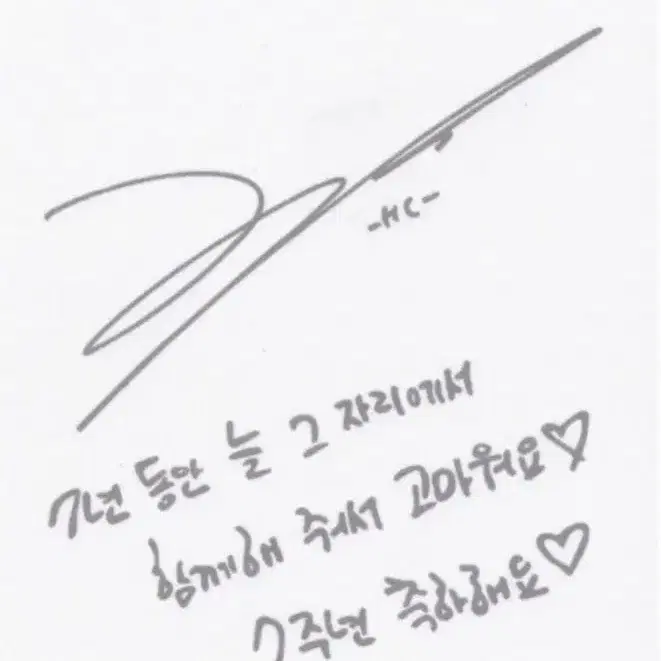 -HC-
7년 동안 늘 그 자리에서
함께해 줘서 고마워요♡
7주년 축하해요♡